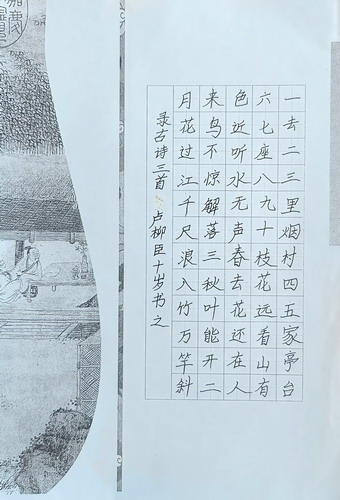 一去二三里烟村四五家亭台
六七座八九十枝花远看山有
色近听水无声春去花还在人
来鸟不惊解落三秋叶能开二
月花过江千尺浪入竹万竿斜
录古诗三首 卢柳臣十岁书之